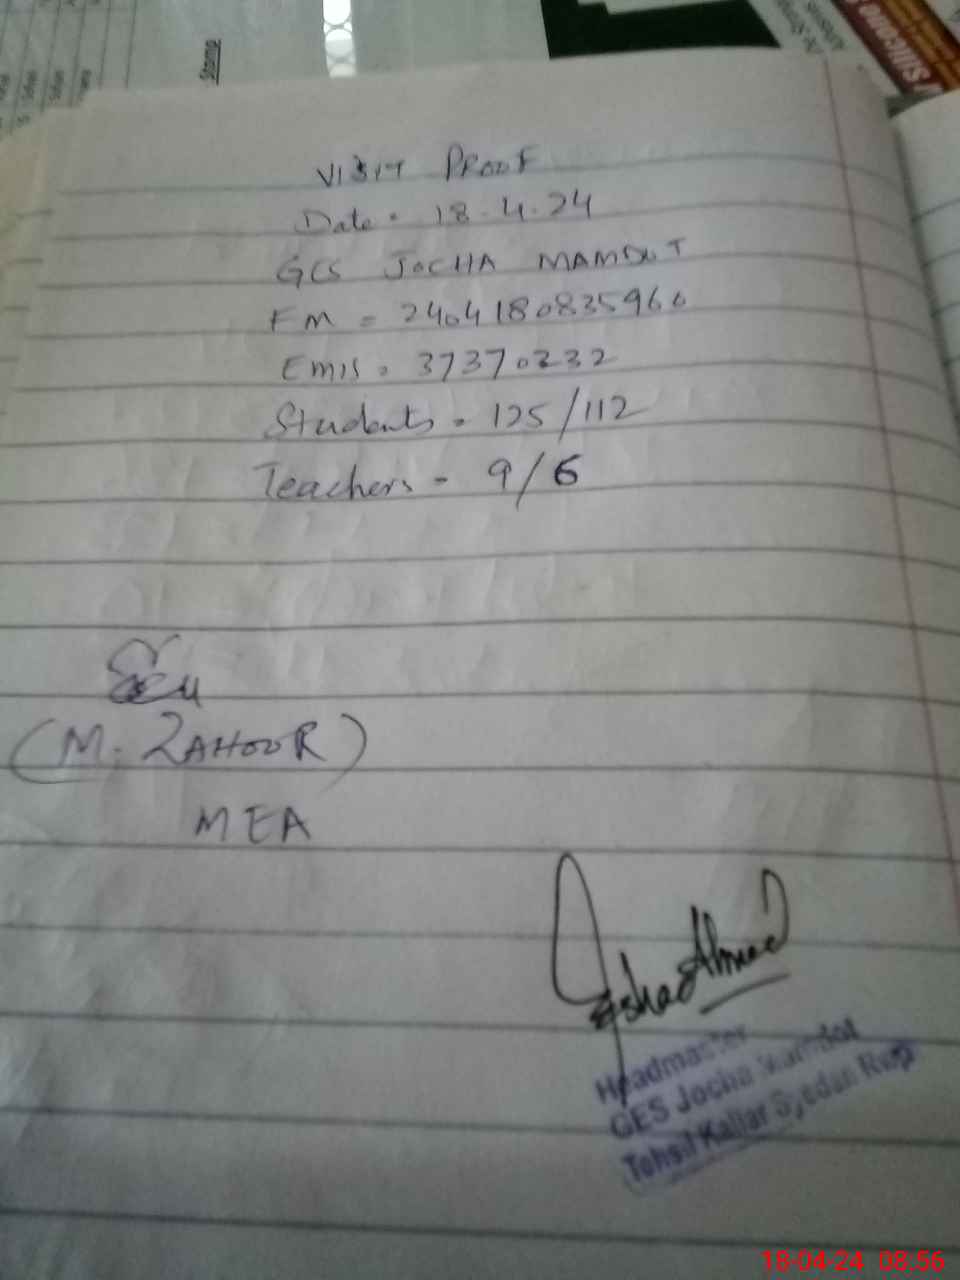 Stamp
VISIT PROOF
Date = 18.4.24
GES JOCHA MAMDOT
FM = 2404180835960
Emis = 37370232
Students = 125/112
Teachers = 9/6
(M. ZAHOOR)
MEA
Ahmad
Headmaster
GES Jocha Mamdot
Tehsil Kallar Syedan Rwp
18-04-24 08:56